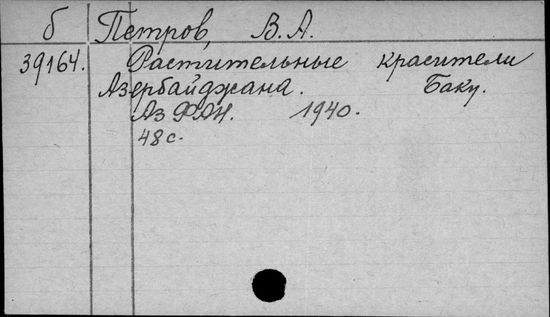 б Петров, В. А.
39164. Растительные красители
Азербайджана. Баку.
Аз ФАН. 1940.
48 с.